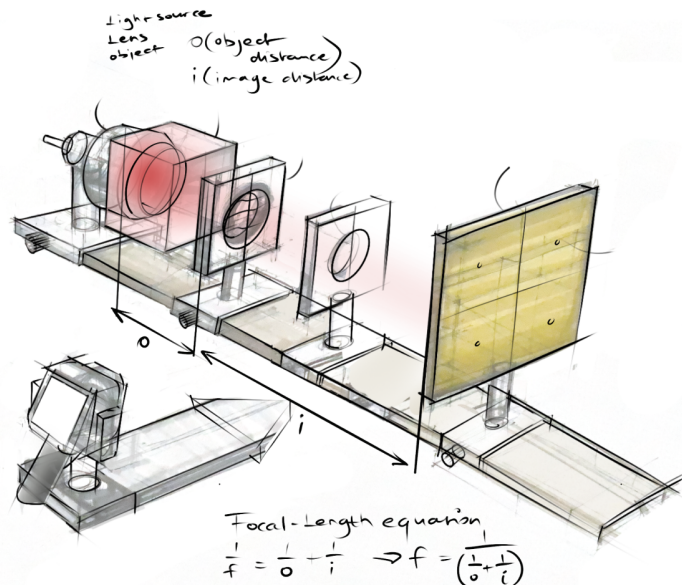 Light source
Lens
object
O (object distance)
i (image distance)
O
i
Focal-Length equation
1/f = 1/O + 1/i ⇒ f = 1/(1/O + 1/i)